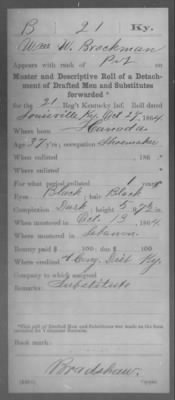 B 21 Ky.
Wm W. Brockman
Appears with rank of Pvt on
Muster and Descriptive Roll of a Detach-
ment of Drafted Men and Substitutes
forwarded *
for the 21 Reg't Kentucky Inf. Roll dated
Louisville Ky. Oct 27, 1864
Where born Canada
Age 37 y'rs; occupation Shoemaker
When enlisted , 186
Where enlisted
For what period enlisted 1 years
Eyes Black ; hair Black
Complexion Dark ; height 5 ft. 7½ in.
When mustered in Oct. 13 , 1864
Where mustered in Lebanon
Bounty paid $ 100 ; due $ 100
Where credited Cong. Dist Ky.
Company to which assigned
Remarks: Substitute
*This roll of Drafted Men and Substitutes was made on the form
Book mark:
Bradshaw.